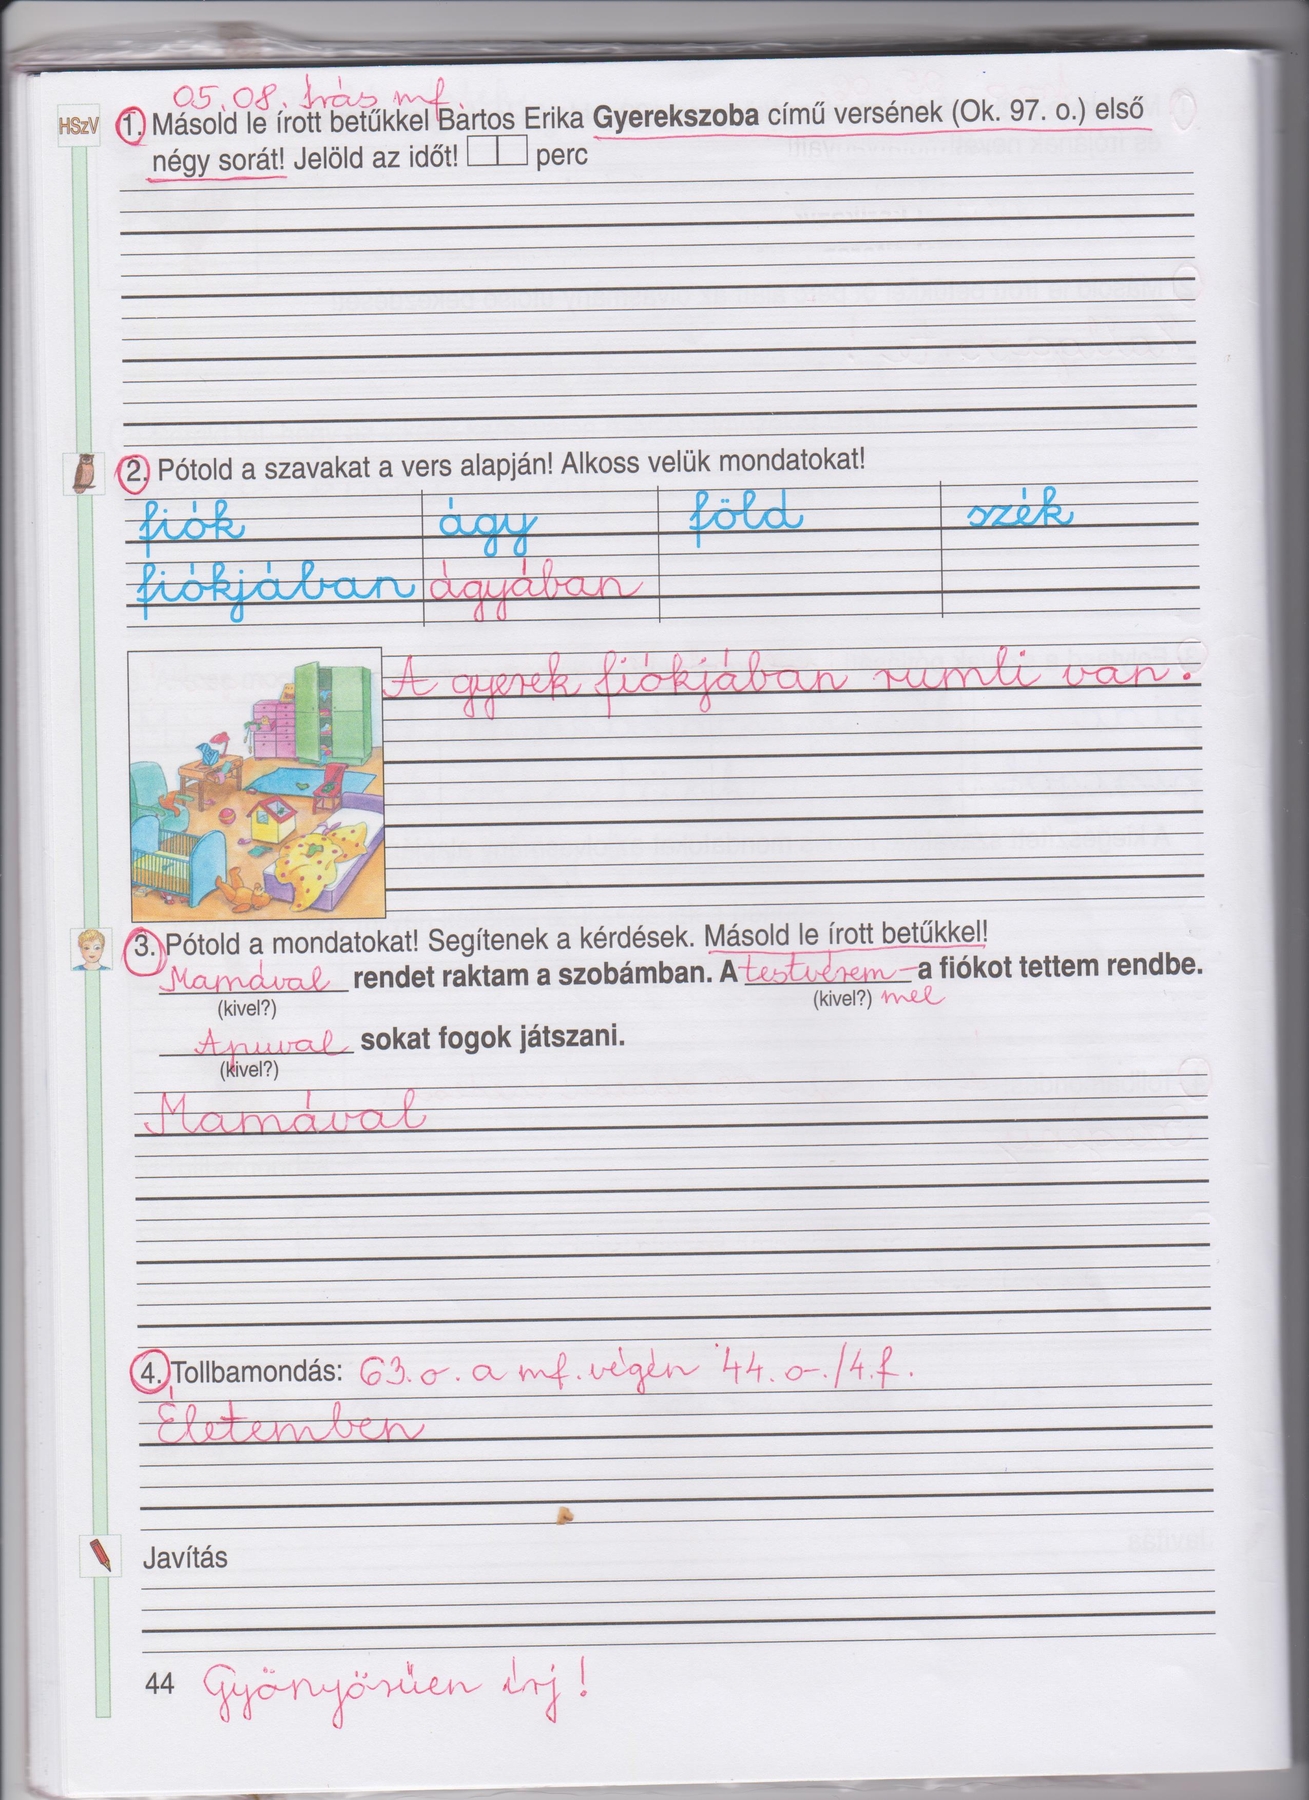 05.08. Írás mf.
HSzV
1. Másold le írott betűkkel Bartos Erika Gyerekszoba című versének (Ok. 97. o.) első
négy sorát! Jelöld az időt! perc
2. Pótold a szavakat a vers alapján! Alkoss velük mondatokat!
fiók ágy föld szék
fiókjában ágyában
A gyerek fiókjában rumli van.
3. Pótold a mondatokat! Segítenek a kérdések. Másold le írott betűkkel!
Mamával rendet raktam a szobámban. A testvérem- a fiókot tettem rendbe.
(kivel?) (kivel?) mel
Apuval sokat fogok játszani.
(kivel?)
Mamával
4. Tollbamondás: 63.o. a mf. végén 44. o./4.f.
Életemben
Javítás
44 Gyönyörűen írj!